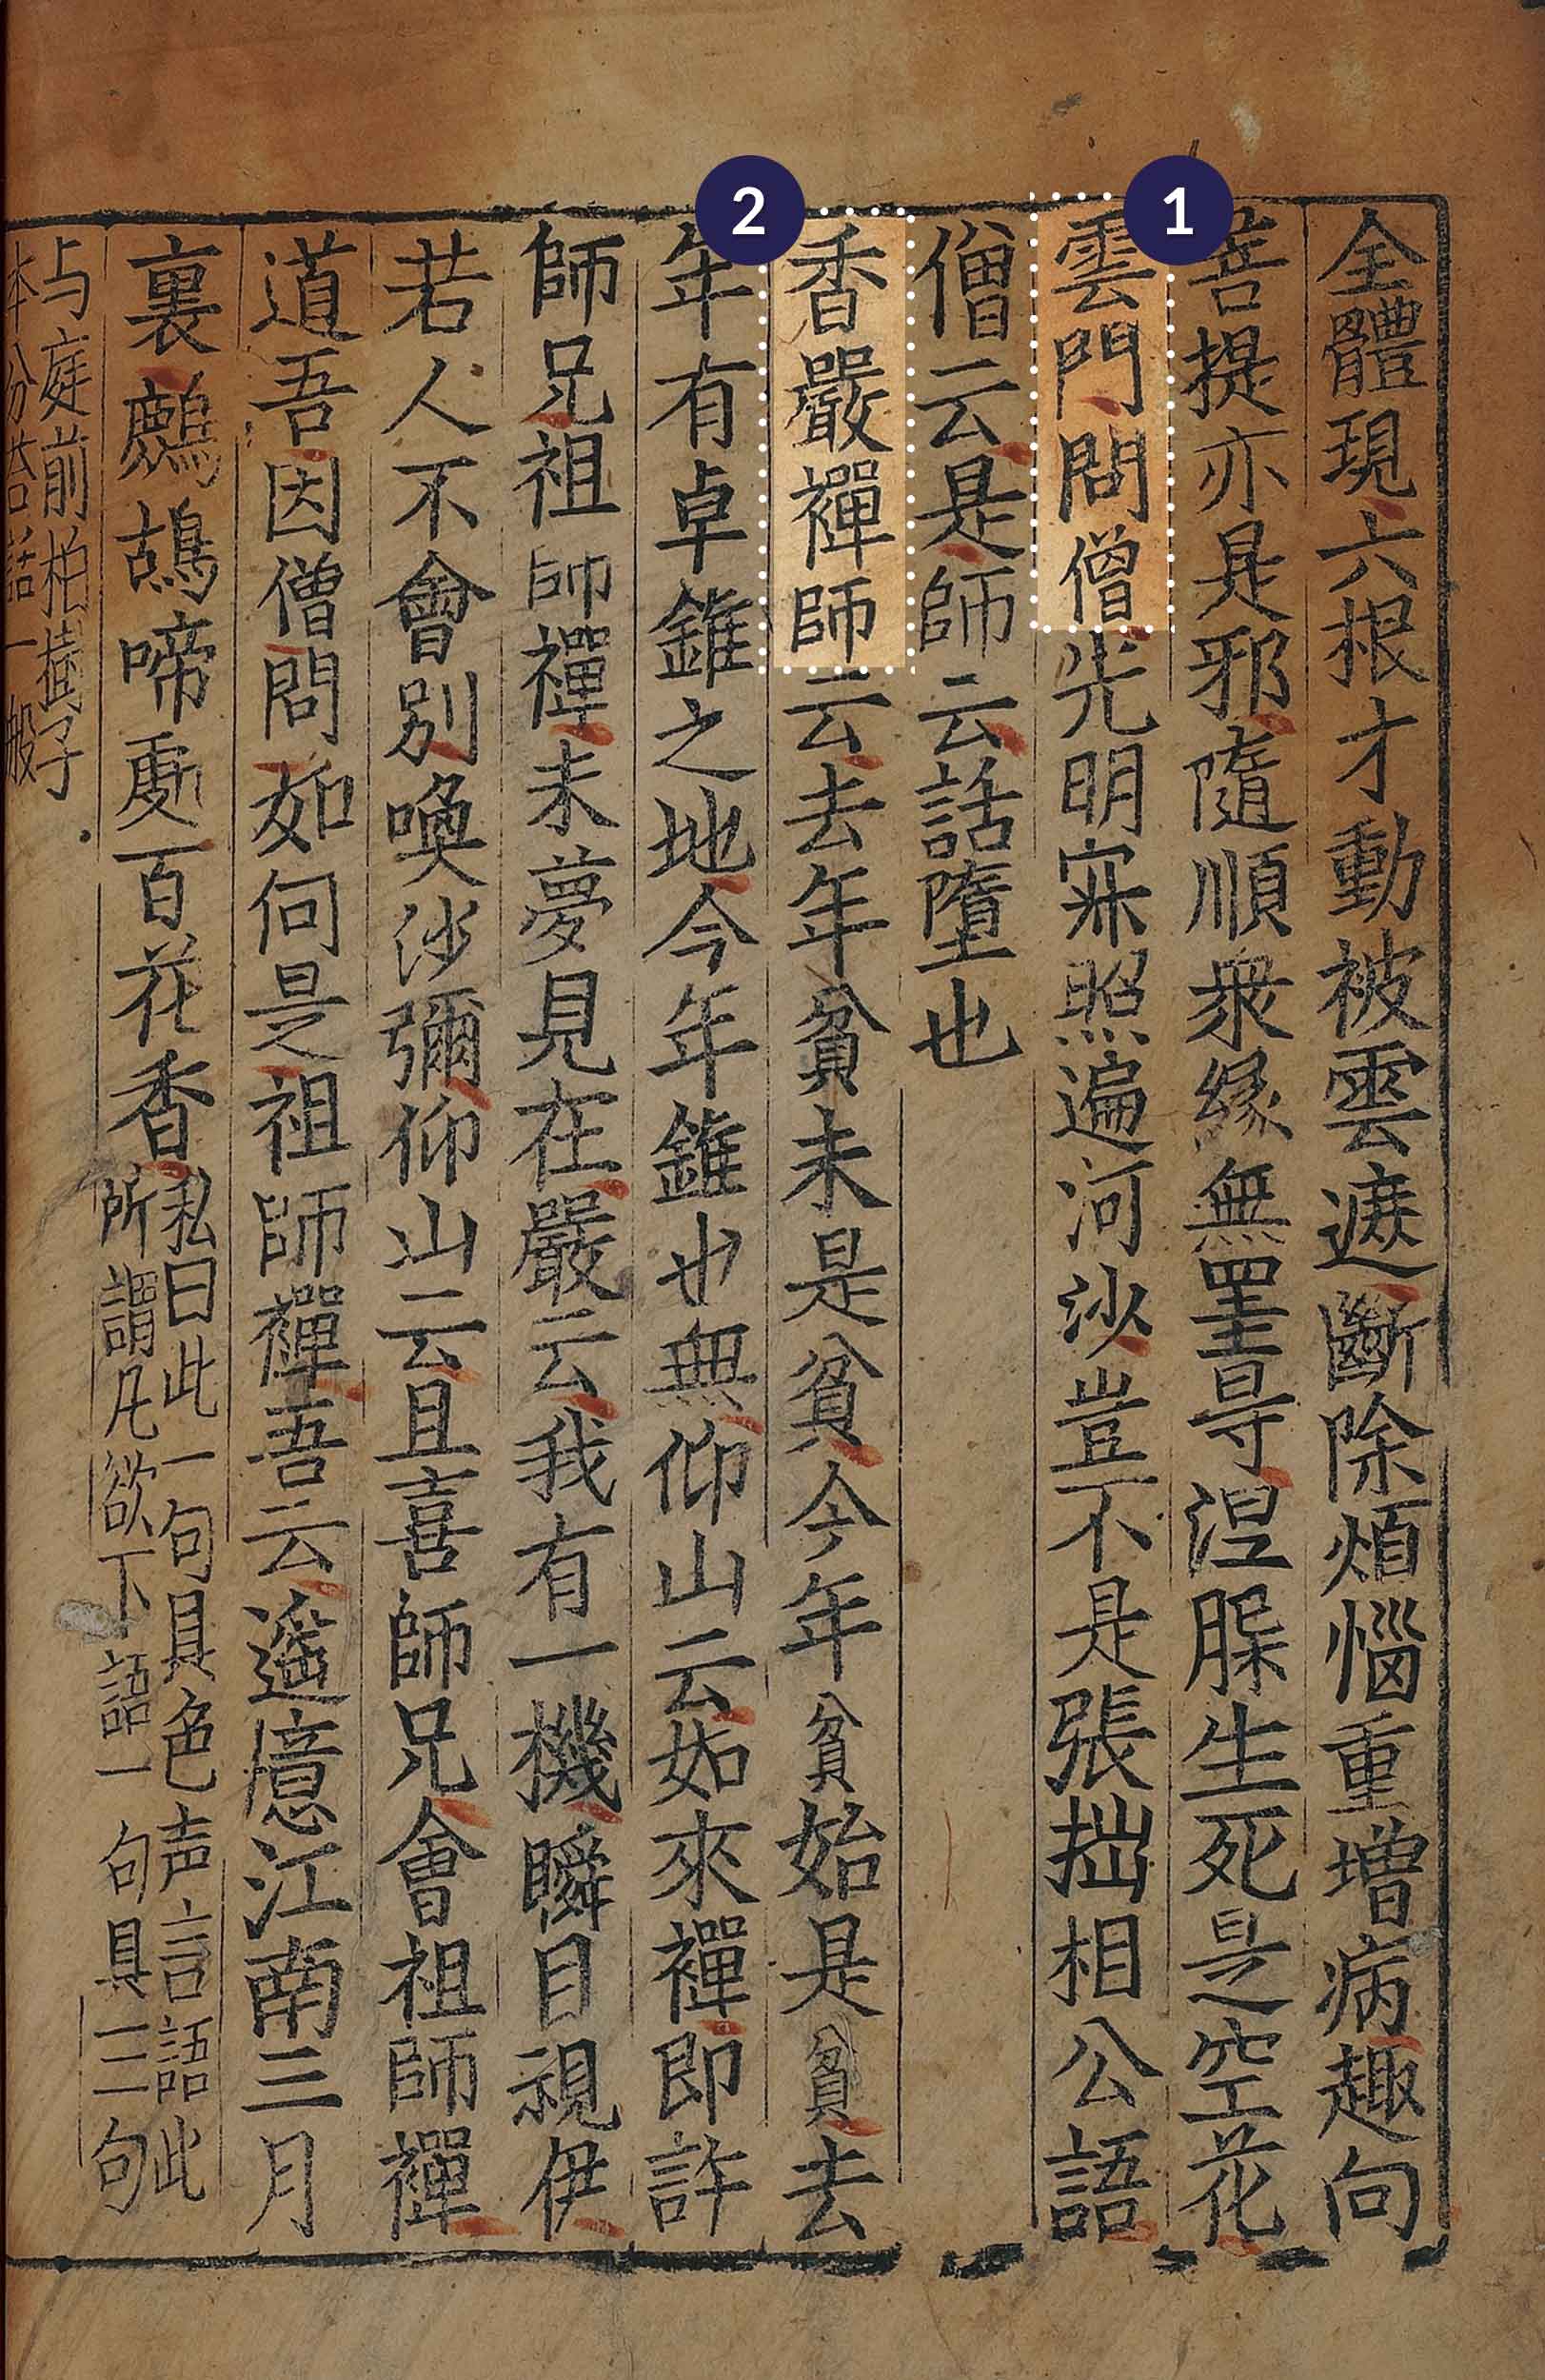 全體現六根才動被雲遮斷除煩惱重增病趣向
菩提亦是邪隨順衆緣無罣㝵涅脲生死是空花
雲門問僧光明寂照遍河沙豈不是張拙相公語
僧云是師云話墮也
香嚴禪師云去年貧未是貧今年貧始是貧去
年有卓錐之地今年錐也無仰山云如來禪即許
師兄祖師禪未夢見在嚴云我有一機瞬目視伊
若人不會別喚沙彌仰山云且喜師兄會祖師禪
道吾因僧問如何是祖師禪吾云遥憶江南三月
裏鷓鴣啼處百花香私曰此一句具色声言語此
所謂凡欲下語一句具三句
与庭前柏樹子
本分荅話一般
1
2